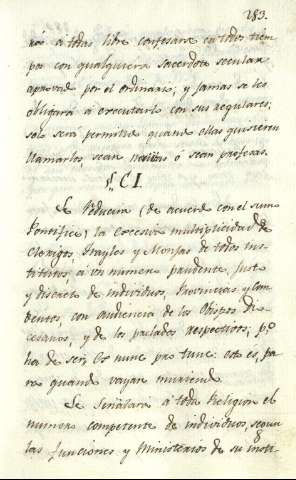 183.
rás á todas libre confesarse en todos tiem
pos con qualquiera sacerdote secular
aprovado por el ordinario; y jamas se les
obligará á executarlo con sus regulares;
solo será permitido quando ellas quisieren
llamarlos, sean novicias ó sean profesas.
§. CI.
Se Reducira (de acuerdo con el sumo
Pontifice) la excesiva multiplicidad de
Clerigos, Frayles y Monjas de todos ins-
titutos, á un numero prudente, justo
y discreto de individuos, Provincias y con
ventos, con audiencia de los Obispos Dio
cesanos, y de los prelados respectivos; pº
ha de ser, Ex nunc pro tunc: esto es, pa
ra quando vayan muriendo.
Se señalará á toda Religion el
numero competente de individuos, segun
las funciones y Ministerios de su insti-